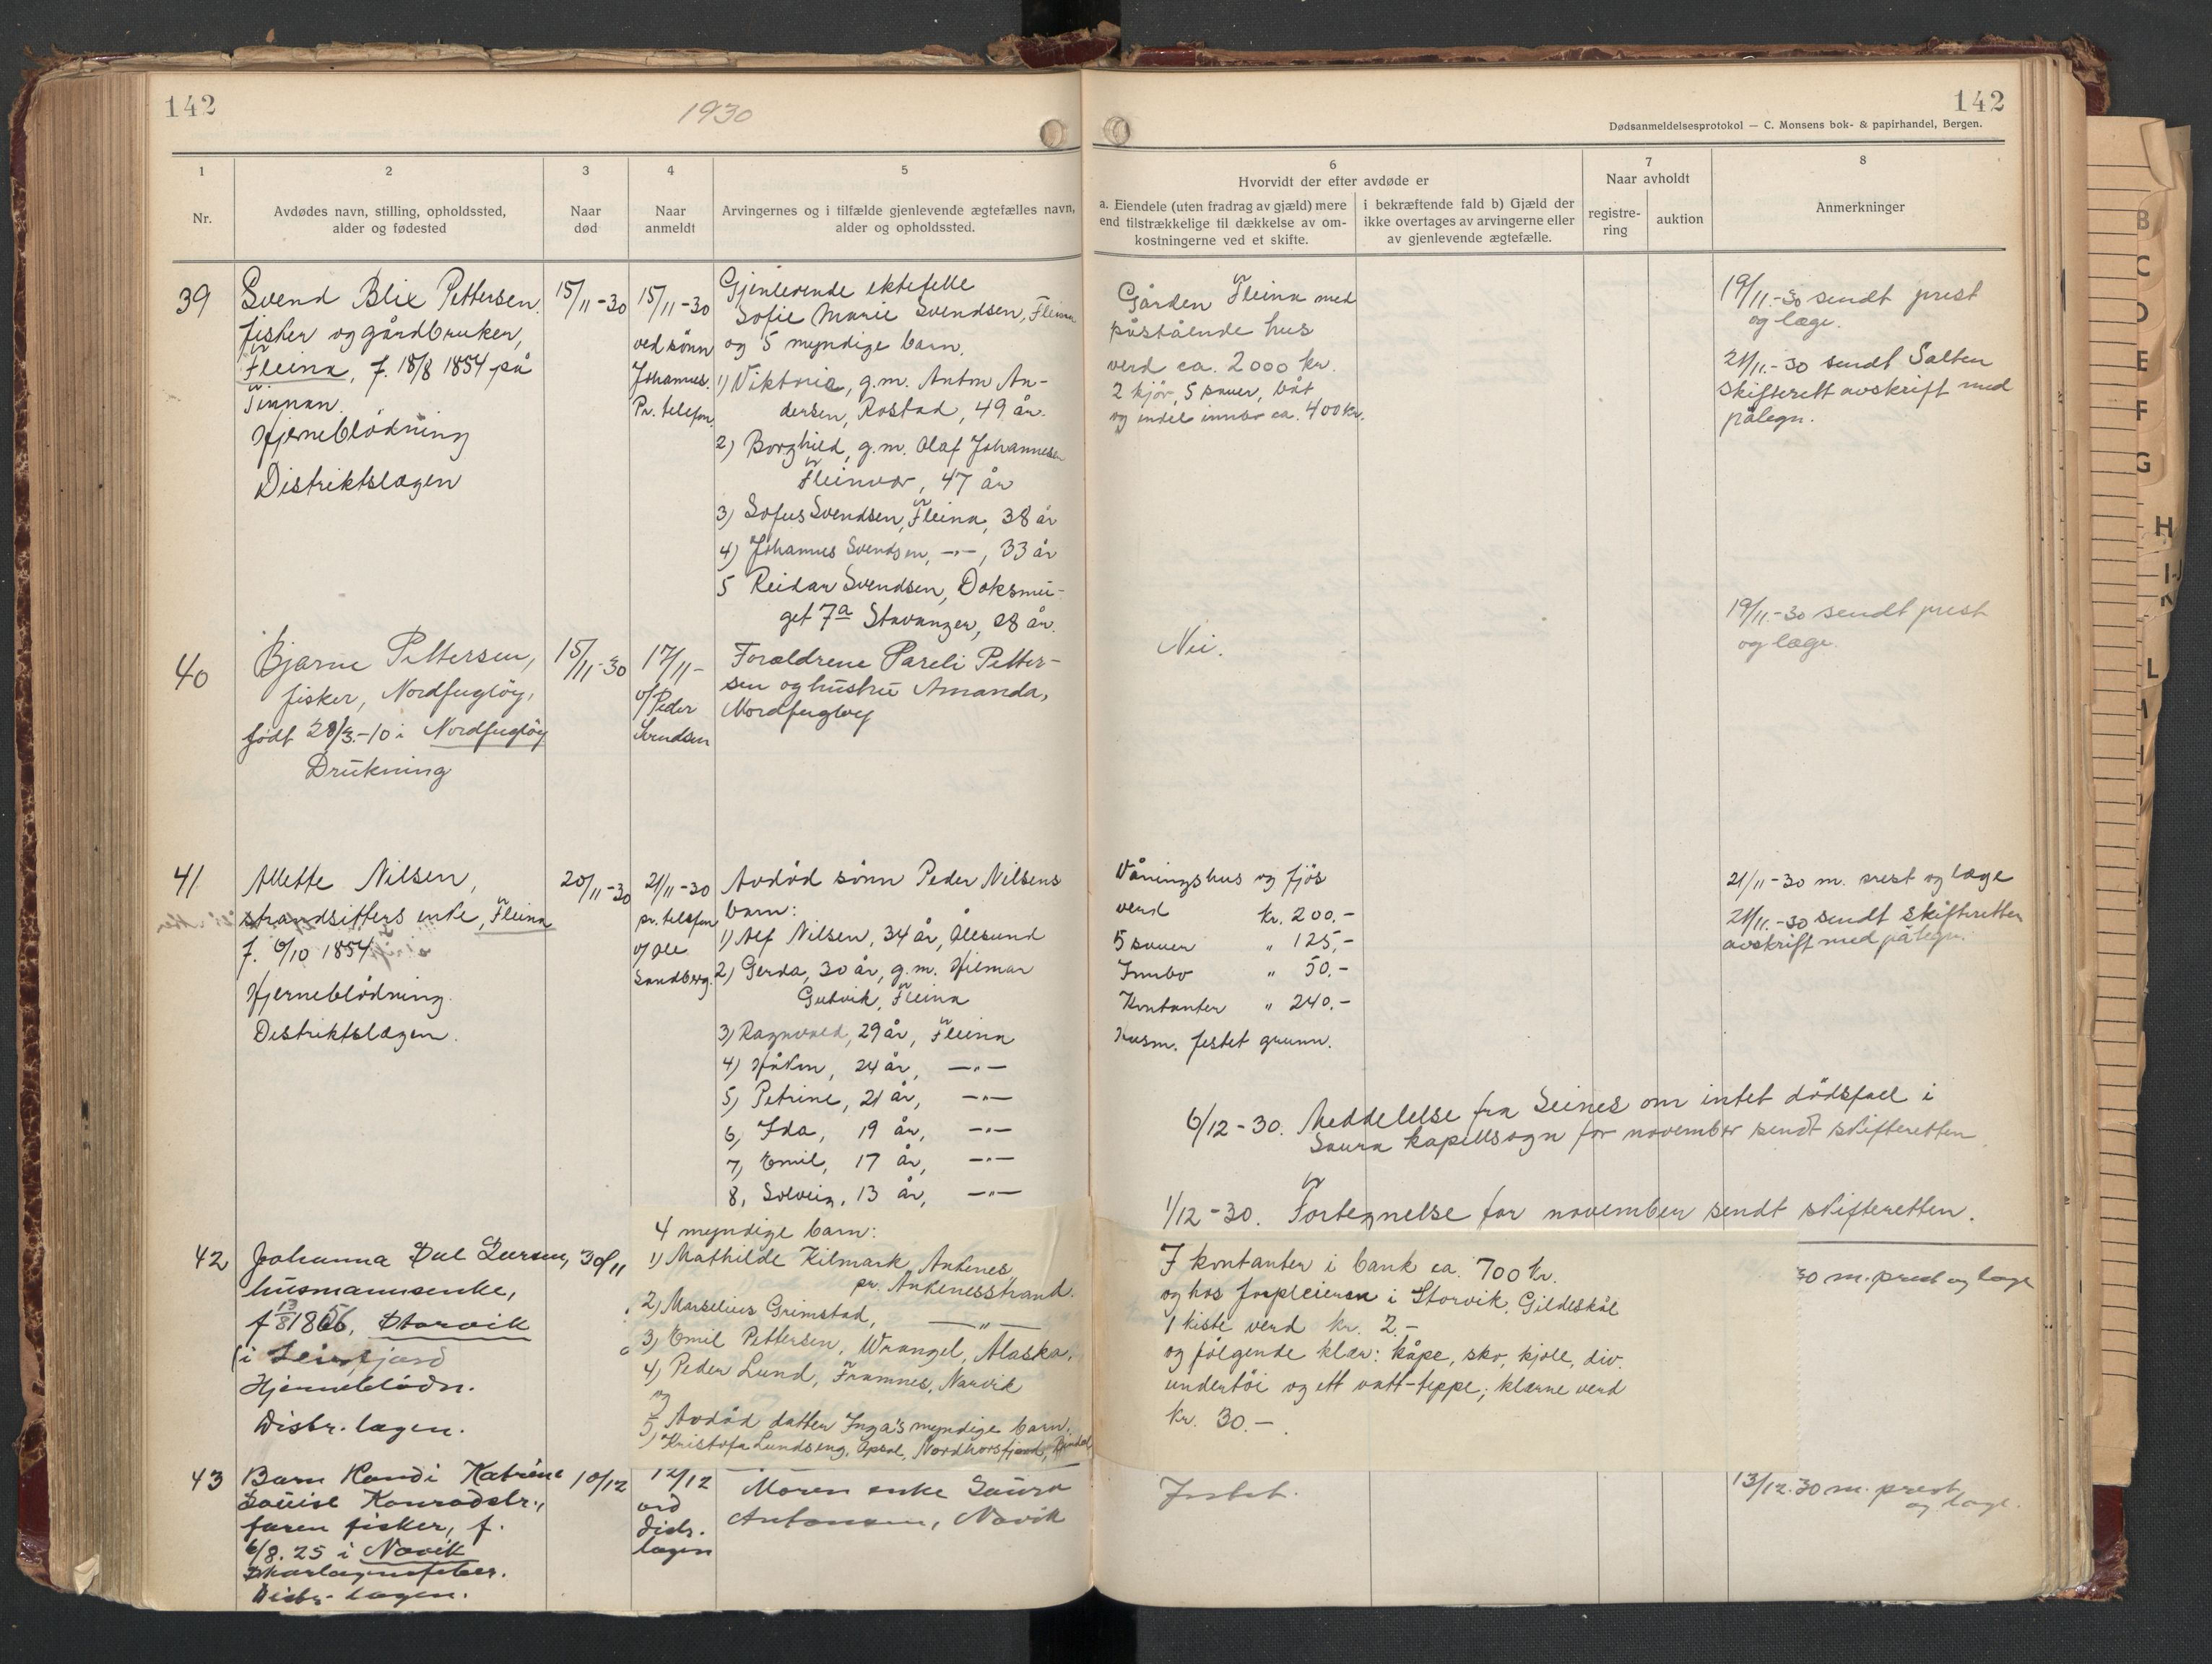 142
1930
1
2
3
4
5
Nr.
Avdødes navn, stilling, opholdssted,
alder og fødested
Naar
død
Naar
anmeldt
Arvingernes og i tilfælde gjenlevende ægtefælles navn,
alder og opholdssted.
39
Svend Blix Pettersen
fisker og gårdbruker,
Fleina, f. 18/8 1854 på
Hjerneblødning
Distriktslægen
15/11-30
15/11-30
ved sønn
Johannes.
Pr. telefon.
Gjenlevende ektefelle
Sofie Marie Svendsen, Fleina
og 5 myndige barn.
1) Viktoria, g.m. Anton An-
dersen, Rostad, 49 år.
2) Borghild, g.m. Olaf Johannesen
Fleinvær, 47 år
3) Sofus Svendsen, Fleina, 38 år
4) Johannes Svendsen, -"-, 33 år
5 Reidar Svendsen, Doksmu-
get 7a Stavanger, 28 år.
40
Bjarne Pettersen,
fisker, Nordfugløy,
født 28/3.-10 i Nordfugløy
Drukning
15/11-30
17/11-
v/Peder
Svendsen
Forældrene Pareli Petter-
sen og hustru Amanda,
Nordfugløy
41
Allette Nilsen,
strandsitters enke, Fleina
f. 6/10 1854
Hjerneblødning.
Distriktslægen.
20/11-30
21/11-30
pr. telefon
v/ Ole
Sandberg.
Avdød sønn Peder Nilsens
barn:
1) Alf Nilsen, 34 år, Ålesund
2) Gerda, 30 år, g.m. Hilmar
Gutvik, Fleina
3) Ragnvald, 29 år, Fleina
4) Håkon, 24 år, -"-
5) Petrine, 21 år, -"-
6, Ida, 19 år, -"-
7, Emil, 17 år, -"-
8, Solveig, 13 år, -"-
42
Johanna Dal Larsen,
husmannsenke,
f 13/8 1856, Storvik
(i Leirfjord
Hjerneblødn.
Distr. lægen.
30/11
4 myndige barn:
1) Mathilde Kilmark, Ankenes,
pr. Ankenesstrand.
2) Marselius Grimstad, -"-
3) Emil Pettersen, Wrangel, Alaska,
4) Peder Lund, Framnes, Narvik
5 Avdød datter Inga's myndige barn,
1) Kristofa Lundseng, Opsal, Nordhorsfjord, Bindal
43
Barn Randi Katrine
Louise Konradsdtr.,
faren fisker, f.
6/8.25 i Novik
Skarlagensfeber.
Distr. lægen.
10/12
12/12
ved
distr.
lægen
Moren enke Laura
Antonsen, Novik
142
Dødsanmeldelsesprotokol — C. Monsens bok- & papirhandel, Bergen.
6
Hvorvidt der efter avdøde er
a. Eiendele (uten fradrag av gjæld) mere
end tilstrækkelige til dækkelse av om-
kostningerne ved et skifte.
i bekræftende fald b) Gjæld der
ikke overtages av arvingerne eller
av gjenlevende ægtefælle.
7
Naar avholdt
registre-
ring
auktion
8
Anmerkninger
Gården Fleina med
påstående hus
verd ca. 2000 kr.
2 kjør, 5 sauer, båt
og endel innbo ca. 400 kr.
19/11.-30 sendt prest
og læge.
24/11.-30 sendt Salten
skifterett avskrift med
påtegn.
Nei.
19/11.-30 sendt prest
og læge.
Våningshus og fjøs
verd kr. 200.-
5 sauer " 125,-
Innbo " 50.-
Kontanter " 240.-
Husm. festet grunn.
21/11-30 m. prest og læge
24/11.-30 sendt skifteretten
avskrift med påtegn.
6/12-30. Meddelelse fra Seines om intet dødsfall i
Saura kapellsogn for november sendt skifteretten.
1/12-30. Fortegnelse for november sendt skifteretten.
I kontanter i bank ca. 700 kr.
og hos forpleieren i Storvik, Gildeskål
1 kiste verd kr. 2.-
og følgende klær: kåpe, sko, kjole, div.
undertøi og ett vatt-teppe; klærne verd
kr. 30.-
30 m. prest og læge
Intet.
13/12.30 m. prest
og læge.
B
C
D
E
F
G
H
I-J
K
L